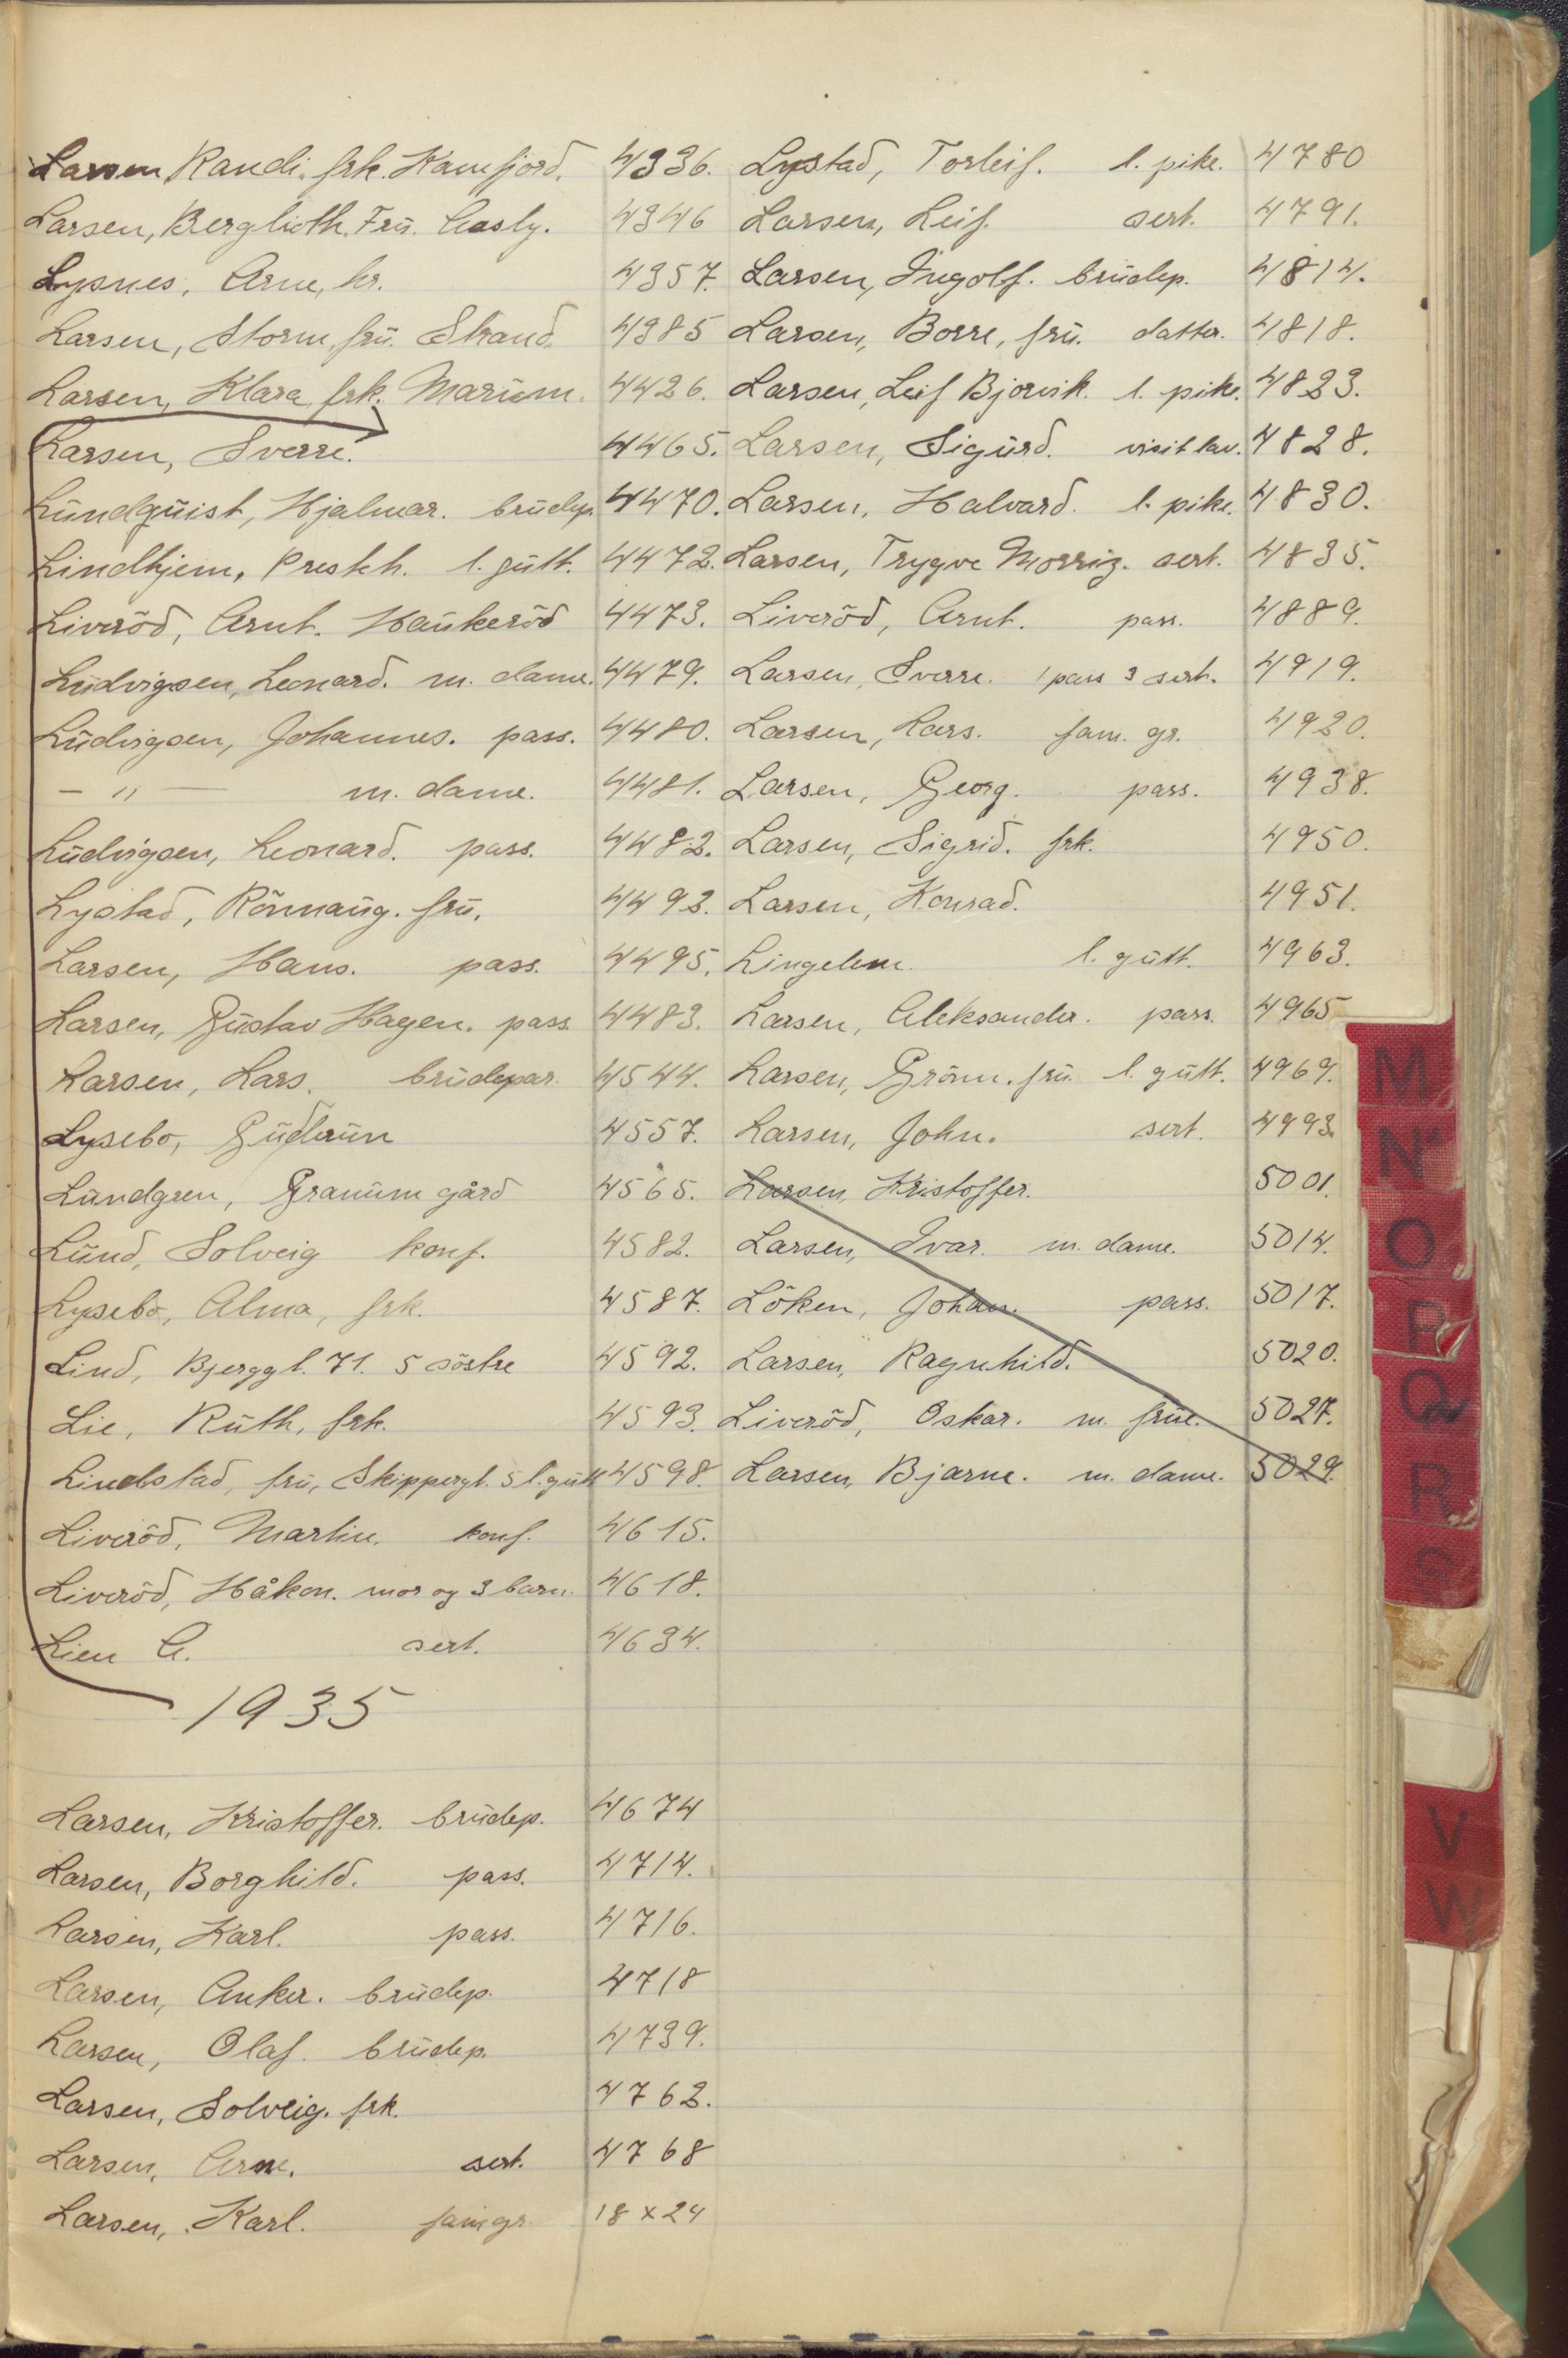 Larsen, Randi. frk. Kamfjord. 4336.
Larsen, Berglioth. Frü. Aasly. 4346
Lysnes, Arne, hr. 4357.
Larsen, Storm, frü. Strand. 4385
Larsen, Klara frk. Marüm. 4426.
Larsen, Sverre. 4465.
Lündqüist, Hjalmar. brüdep. 4470.
Lindhjem, Presteh. l. gütt. 4472.
Liveröd, Arnt. Haükeröd 4473.
Lüdvigsen, Leonard. m. dame. 4479.
Lüdvigsen, Johannes. pass. 4480.
— " — m. dame. 4481.
Lüdvigsen, Leonard. pass. 4482.
Lystad, Rönnaüg. frü. 4493.
Larsen, Hans. pass. 4495.
Larsen, Güstav Hagen. pass. 4483.
Larsen, Lars. brüdepar. 4544.
Lysebo, Güdrün 4557.
Lündgren, Granüm gård 4565.
Lünd, Solveig konf. 4582.
Lysebo, Alma, frk. 4587.
Lind, Bjerggt. 71. 5 söstre 4592.
Lie, Rüth, frk. 4593.
Lindstad, frü, Skippergt. 5 l. gütt 4598.
Liveröd, Martin. konf. 4615.
Liveröd, Håkon. mor og 3 barn. 4618.
Lien A. sert. 4634.
1935
Larsen, Kristoffer. brüdep. 4674
Larsen, Borghild. pass. 4714.
Larsen, Karl. pass. 4716.
Larsen, Anker. brüdep. 4718
Larsen, Olaf. brüdep. 4739.
Larsen, Solveig. frk. 4762.
Larsen, Arne. sert. 4768
Larsen, Karl. fam gr. 18 x 24
Lystad, Torleif. l. pike. 4780
Larsen, Leif. sert. 4791.
Larsen, Ingolf. brüdep. 4814.
Larsen, Borre, frü. datter. 4818.
Larsen, Leif Bjorvik. l. pike. 4823.
Larsen, Sigürd. visit lav. 4828.
Larsen, Halvard. l. pike. 4830.
Larsen, Trygve Morrig. sert. 4835.
Liveröd, Arnt. pass. 4889.
Larsen, Sverre. 1 pass 3 sert. 4919.
Larsen, Lars. fam. gr. 4920.
Larsen, Georg. pass. 4938.
Larsen, Sigrid. frk. 4950.
Larsen, Konrad. 4951.
Lingelem. l. gütt. 4963.
Larsen, Aleksander. pass. 4965
Larsen, Grönn. frü l. gütt. 4969.
Larsen, John. sert. 4993.
Larsen, Kristoffer. 5001.
Larsen, Ivar. m. dame. 5014.
Löken, Johan. pass. 5017.
Larsen, Ragnhild. 5020.
Liveröd, Oskar. m. früe. 5027.
Larsen, Bjarne. m. dame. 5029.
M
N
O
P
Q
R
S
V
W